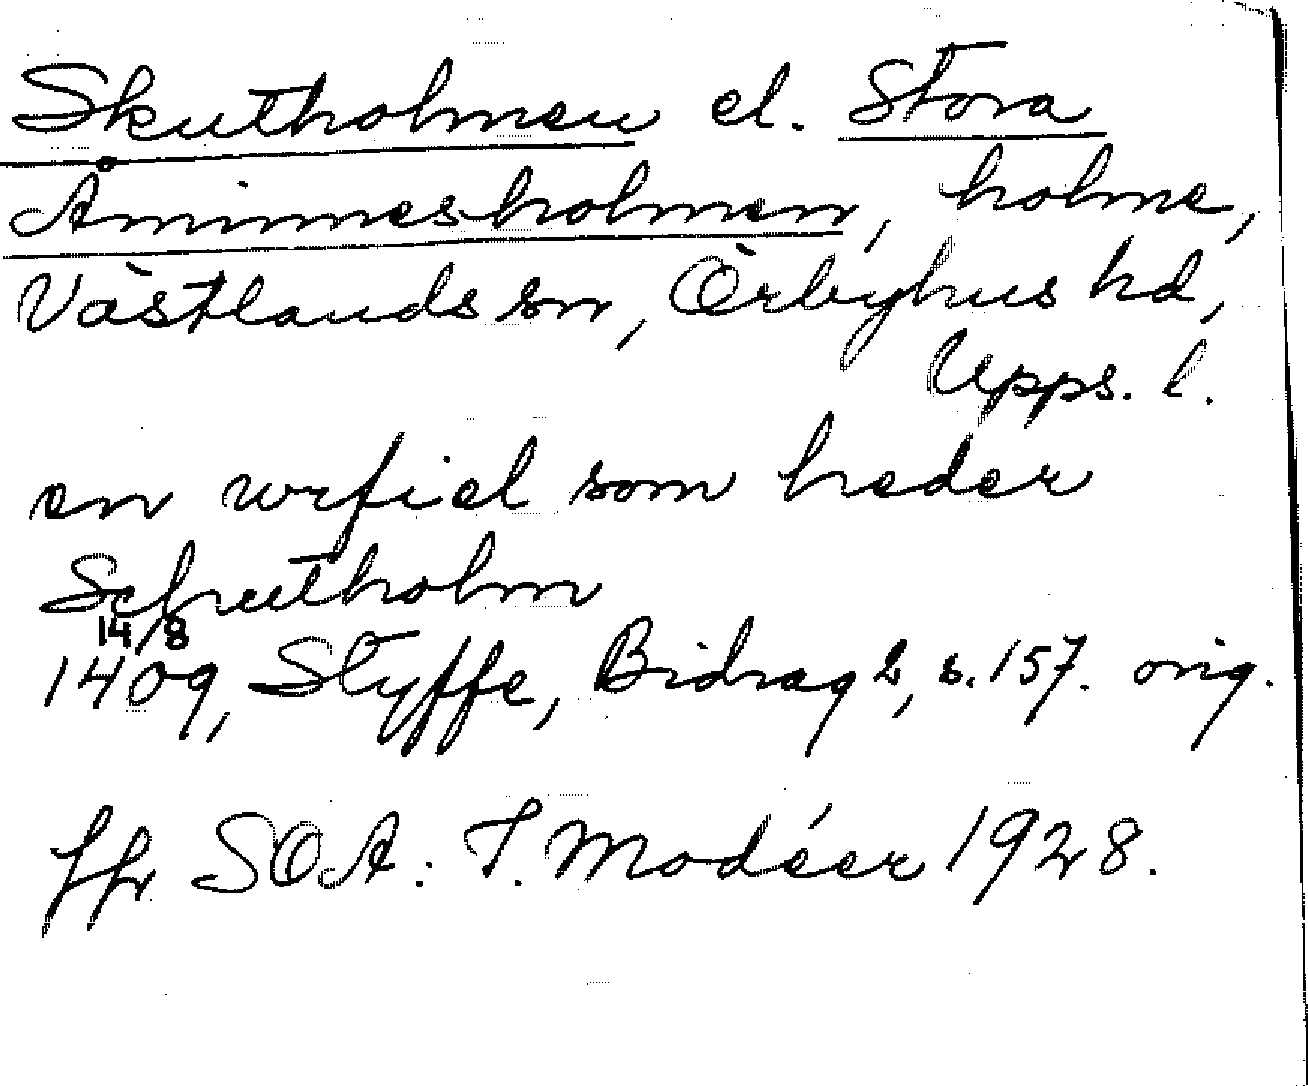 Skutholmen el. Stora
Åminnesholmen, holme,
Västlands sn, Örbyhus hd,
Upps. l.
en wrfiel som heder
Schutholm
14/8
1409, Styffe, Bidrag 2, s. 157. orig.
ffr SOA: I. Modéer 1928.